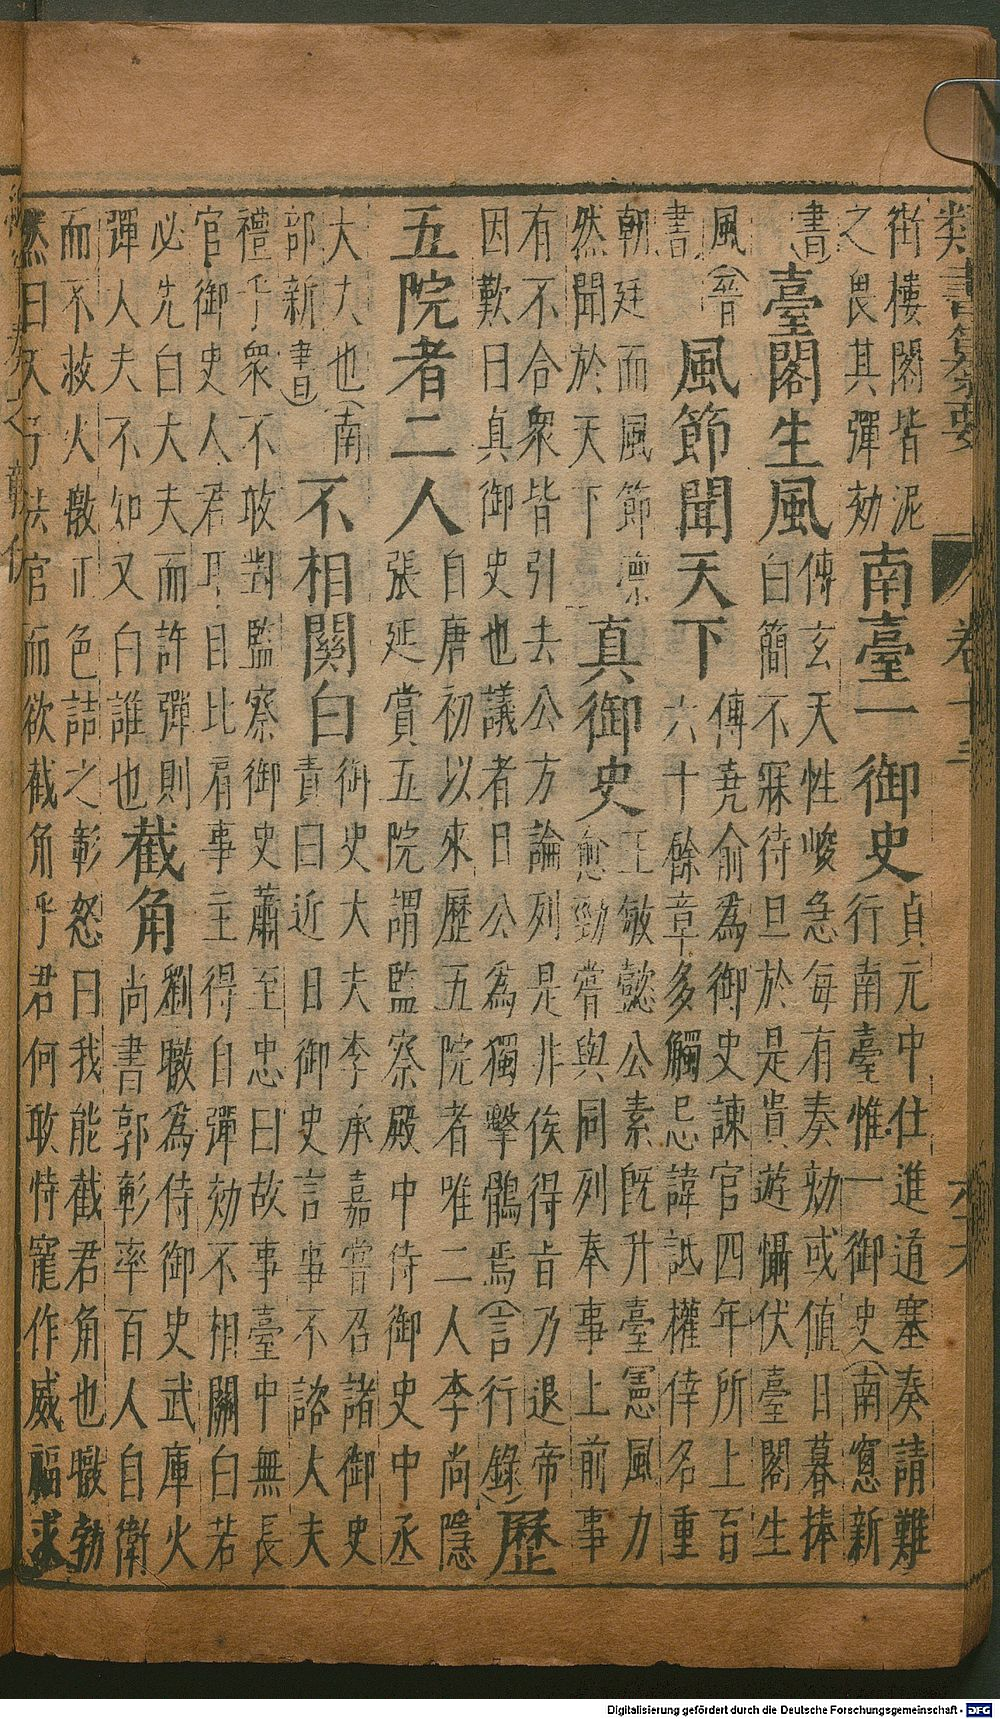 類書纂要 卷十三
街樓閣皆泥
之畏其彈劾
南臺一御史
貞元中仕進道塞奏請難
行南臺惟一御史(南窻新
書)
臺閣生風
傅玄天性峻急每有奏劾或值日暮捧
白簡不寐待旦於是貴遊懾伏臺閣生
風(晉
書)
風節聞天下
傅堯俞為御史諫官四年所上百
六十餘章多觸忌諱詆權倖名重
朝廷而風節凜
然聞於天下
真御史
王敏懿公素既升臺憲風力
愈勁嘗與同列奉事上前事
有不合衆皆引去公方論列是非俟得旨乃退帝
因歎曰真御史也議者曰公為獨擊鶻焉(言行錄)
歷
五院者二人
自唐初以來歷五院者唯二人李尚隱
張延賞五院謂監察殿中侍御史中丞
大夫也(南
部新書)
不相關白
御史大夫李承嘉嘗召諸御史
責曰近日御史言事不諮大夫
禮乎衆不敢對監察御史蕭至忠曰故事臺中無長
官御史人君耳目比肩事主得自彈劾不相關白若
必先白大夫而許彈則
彈人夫不知又白誰也
截角
劉暾為侍御史武庫火
尚書郭彰率百人自衛
而不救火暾正色詰之彰怒曰我能截君角也暾勃
然曰天子法官而欲截角乎君何敢恃寵作威福求
Digitalisierung gefördert durch die Deutsche Forschungsgemeinschaft - DFG